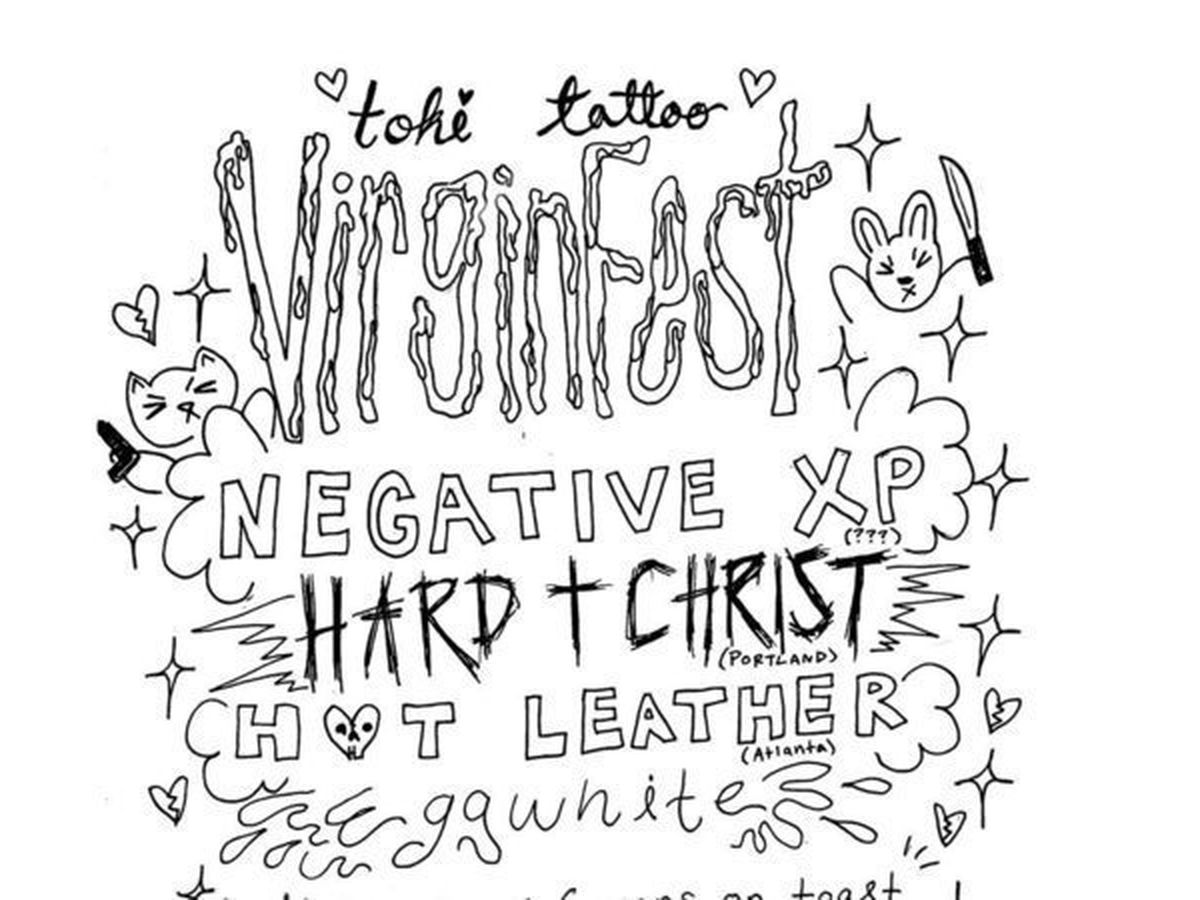 toki tattoo
VirginFest
NEGATIVE XP
(???)
HARD CHRIST
(PORTLAND)
HOT LEATHER
(Atlanta)
Eggwhite
on toast